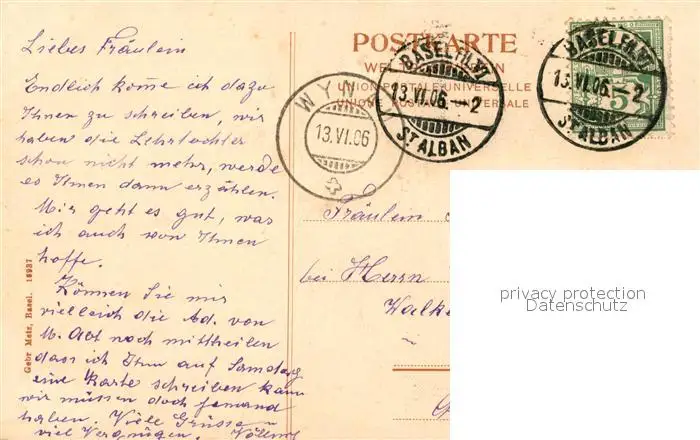 Liebes Fräulein
Endlich kom̄e ich dazu
Ihnen zu schreiben, wir
haben die Lehrtochter
schon nicht mehr, werde
es Ihnen dann erzählen.
Mir geht es gut, was
ich auch von Ihnen
hoffe.
Können Sie mir
vielleich die Ad. von
M. Abt noch mittheilen
dass ich Ihm auf Samstag
eine Karte schreiben kann
wir müssen doch jemand
haben. Viele Grüsse
viel Vergnügen.
Gebr Metz, Basel. 18937
POSTKARTE
UNION POSTALE UNIVERSELLE
WYN
13.VI.06
BASEL FIL.VI
13.VI.06.–2
ST. ALBAN
BASEL FIL.VI
13.VI.06.–2
ST. ALBAN
5
Fräulein
bei Herrn
Walke
privacy protection
Datenschutz